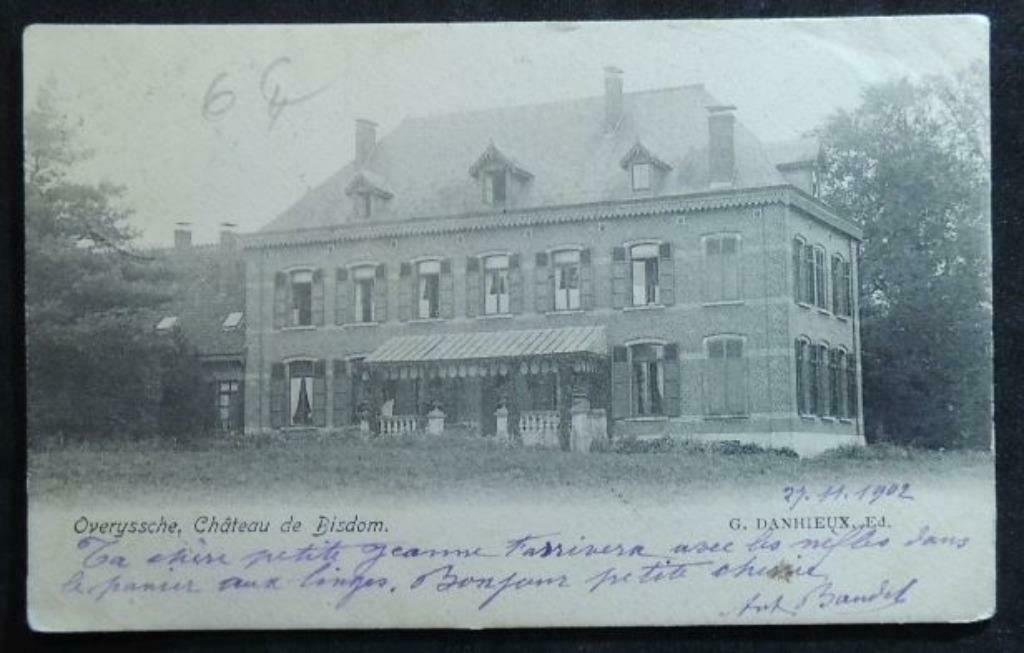 64
27.11.1902
Overyssche, Château de Bisdom.
G. DANHIEUX, Ed.
Ta chère petite Jeanne t'arrivera avec les nèfles dans
le panier aux linges. Bonjour petite chérie
Ant Baudel